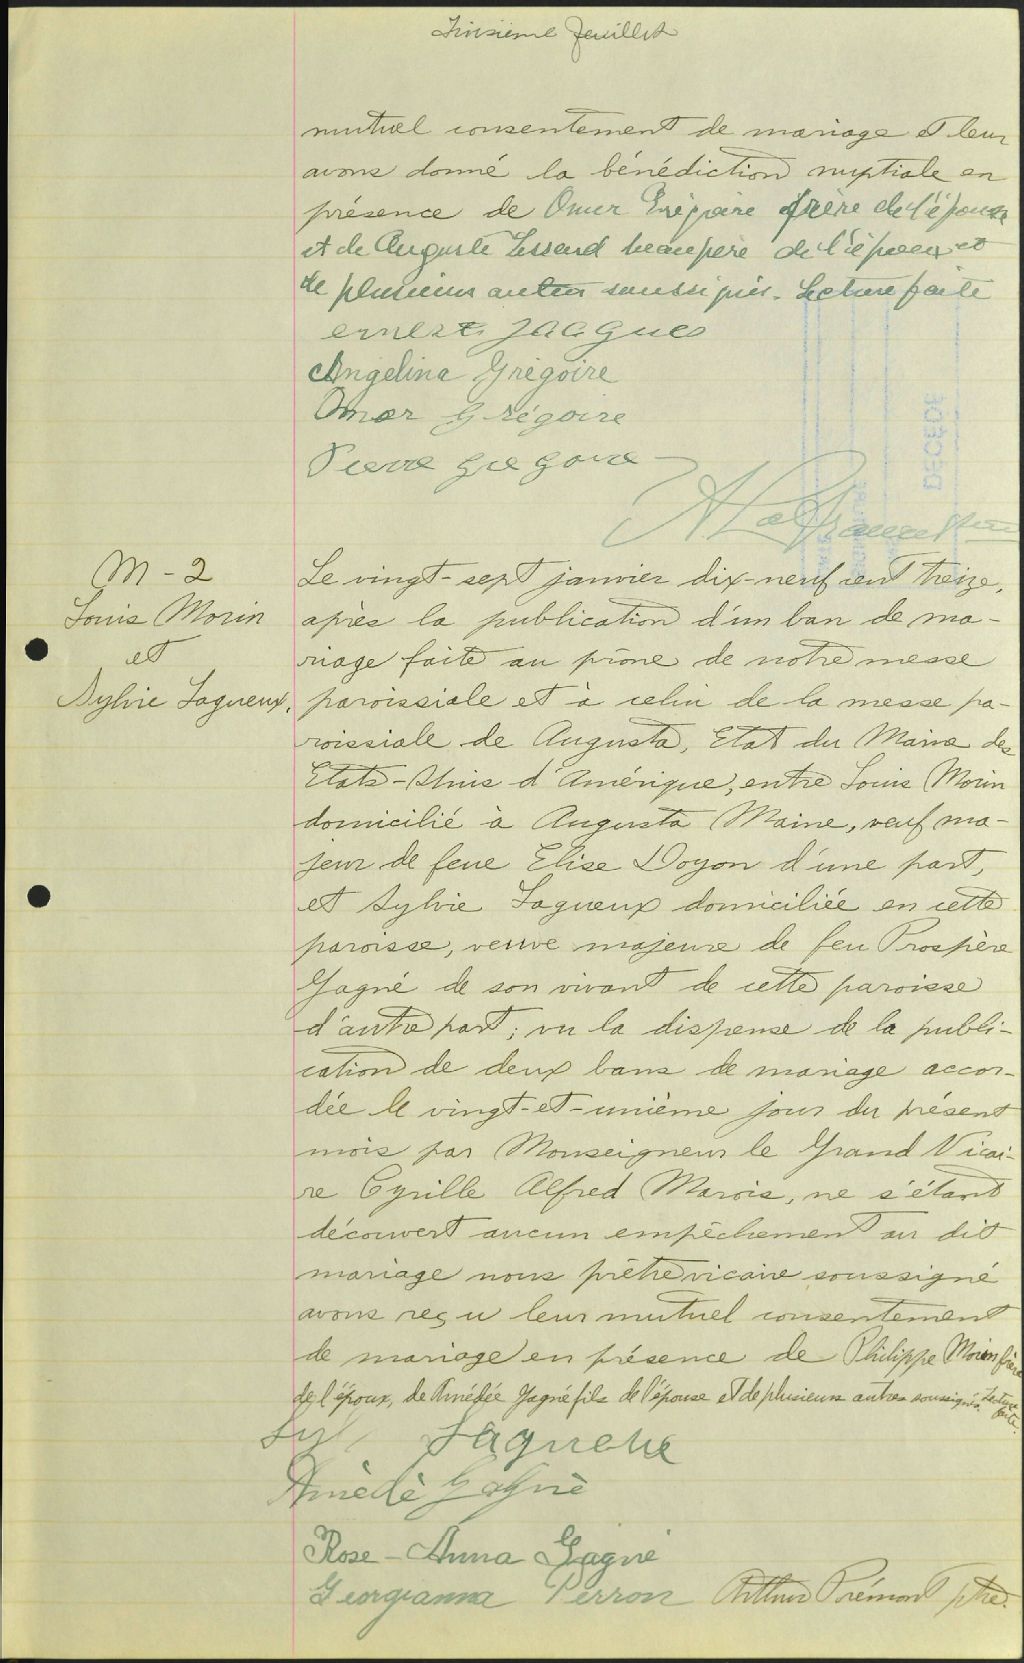 Troisième feuillet
mutuel consentement de mariage et leur
avons donné la bénédiction nuptiale en
présence de Omer Grégoire frère de l'épouse
et de Auguste Lessard beaupère de l'époux et
de plusieurs autres soussignés. Lecture faite
ernest jacques
Angelina Grégoire
Omer Grégoire
Pierre Gregoire
DÉCÉDÉ
M - 2
Louis Morin
et
Sylvie Lagueux.
Le vingt-sept janvier dix-neuf cent treize,
après la publication d'un ban de ma-
riage faite au prône de notre messe
paroissiale et à celui de la messe pa-
roissiale de Augusta, Etat du Maine des
Etats-Unis d'Amérique, entre Louis Morin
domicilié à Augusta Maine, veuf ma-
jeur de feue Elise Doyon d'une part,
et Sylvie Lagueux domiciliée en cette
paroisse, veuve majeure de feu Prospère
Gagné de son vivant de cette paroisse
d'autre part; vu la dispense de la publi-
cation de deux bans de mariage accor-
dée le vingt-et-unième jour du présent
mois par Monseigneur le Grand Vicai-
re Cyrille Alfred Marois, ne s'étant
découvert aucun empêchement au dit
mariage nous prêtre vicaire soussigné
avons reçu leur mutuel consentement
de mariage en présence de Philippe Morin frère
de l'époux, de Amédée Gagné fils de l'épouse et de plusieurs autres soussignés. Lecture faite.
Lagueux
Amèdè Gagnè
Rose-Anna Gagné
Georgianna Perron Arthur Prémont ptre.